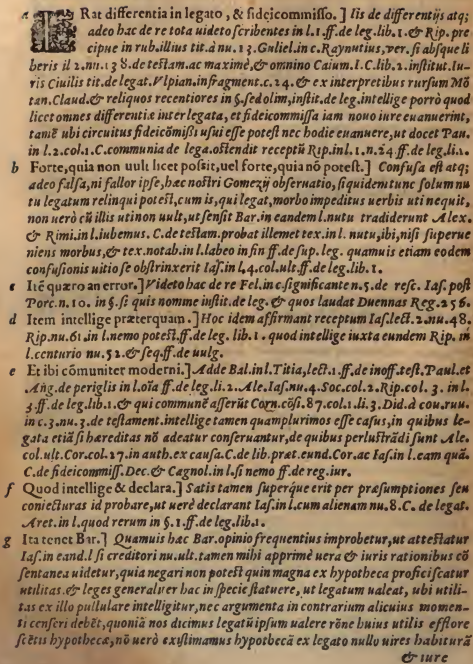 a ERat differentia in legato, & fideicommisso.] Iis de differentijs atq;
adeo hac de re tota uideto scribentes in l.1.ff.de leg.lib.1.& Rip. præ
cipue in rub.illius tit.à nu.13.Guliel.in c.Raynutius,ver.si absque li
beris il 2.nu.138.de testam.ac maximè,& omnino Caium.l.C.lib.2.institut.Iu-
ris Ciuilis tit.de legat.Vlpian.in fragment.c.24.& ex interpretibus rursum Mõ
tan.Claud.& reliquos recentiores in §.sed olim,instit.de leg.intellige porrò quod
licet omnes differentiæ inter legata, et fideicommissa iam nouo iure euanuerint,
tamẽ ubi circuitus fideicõmißi usui esse potest nec hodie euanuere,ut docet Pan.
in l.2.col.1.C.communia de lega.ostendit receptũ Rip.in l.1.n.24 ff.de leg.li.1.
b Forte,quia non uult licet possit,uel forte,quia nõ potest.] Confusa est atq;
adeo falsa,ni fallor ipse,hæc nostri Gomezij obseruatio,siquidem tunc solum nu
tu legatum relinqui potest,cum is,qui legat,morbo impeditus uerbis uti nequit,
non uerò cũ illis uti non uult,ut sensit Bar.in eandem l.nutu tradiderunt Alex.
& Rimi.in l.iubemus. C.de testam.probat illemet tex.in l. nutu,ibi,nisi superue
niens morbus,& tex.notab.in l.labeo in fin ff.de sup. leg. quamuis etiam eodem
confusionis uitio se obstrinxerit Ias.in l,4.col.ult.ff.de leg.lib.1.
c Itẽ quæro an error.] Videto hac de re Fel.in c.significante n.5.de resc. Ias.post
Porc.n.10. in §.si quis nomine instit.de leg.& quos laudat Duennas Reg.256.
d Item intellige præterquam.] Hoc idem affirmant receptum Ias.lect.2.nu.48.
Rip.nu.61.in l.nemo potest.ff.de leg. lib.1. quod intellige iuxta eundem Rip. in
l.centurio nu.52.& seq.ff.de uulg.
e Et ibi cõmuniter moderni.] Adde Bal.in l.Titia,lect.1.ff.de inoff.test.Paul.et
Ang.de periglis in l.oĩa ff.de leg.li.2.Ale.Ias.nu.4.Soc.col.2.Rip.col. 3. in l.
3.ff.de leg.lib.1.& qui communẽ asserũt Corn.cõsi.87.col.1.li.3.Did.à cou.ruu.
in c.3.nu.3.de testament.intellige tamen quamplurimos esse casus,in quibus le-
gata etiã si hæreditas nõ adeatur conseruantur,de quibus perlustrãdi sunt Ale.
col.ult.Cor.col.27.in auth.ex causa.C.de lib.præt.eund.Cor.ac Ias in l.eam quã.
C.de fideicommiss.Dec.& Cagnol.in l.si nemo ff.de reg.iur.
f Quod intellige & declara.] Satis tamen superque erit per præsumptiones seu
coniecturas id probare,ut uerè declarant Ias.in l.cum alienam nu.8.C. de legat.
Aret.in l.quod rerum in §.1.ff.de leg.lib.1.
g Ita tenet Bar.] Quamuis hæc Bar.opinio frequentius improbetur,ut attestatur
Ias.in eand.l si creditori nu.ult.tamen mihi apprimè uera & iuris rationibus cõ
sentanea uidetur,quia negari non potest quin magna ex hypotheca proficiscatur
utilitas.& leges generaliter hac in specie statuere, ut legatum ualeat, ubi utili-
tas ex illo pullulare intelligitur,nec argumenta in contrarium alicuius momen-
ti censeri debẽt,quoniã nos dicimus legatũ ipsum ualere rõne huius utilis efflore
scẽtis hypothecæ,nõ uerò existimamus hypothecã ex legato nullo uires habiturã
& iure